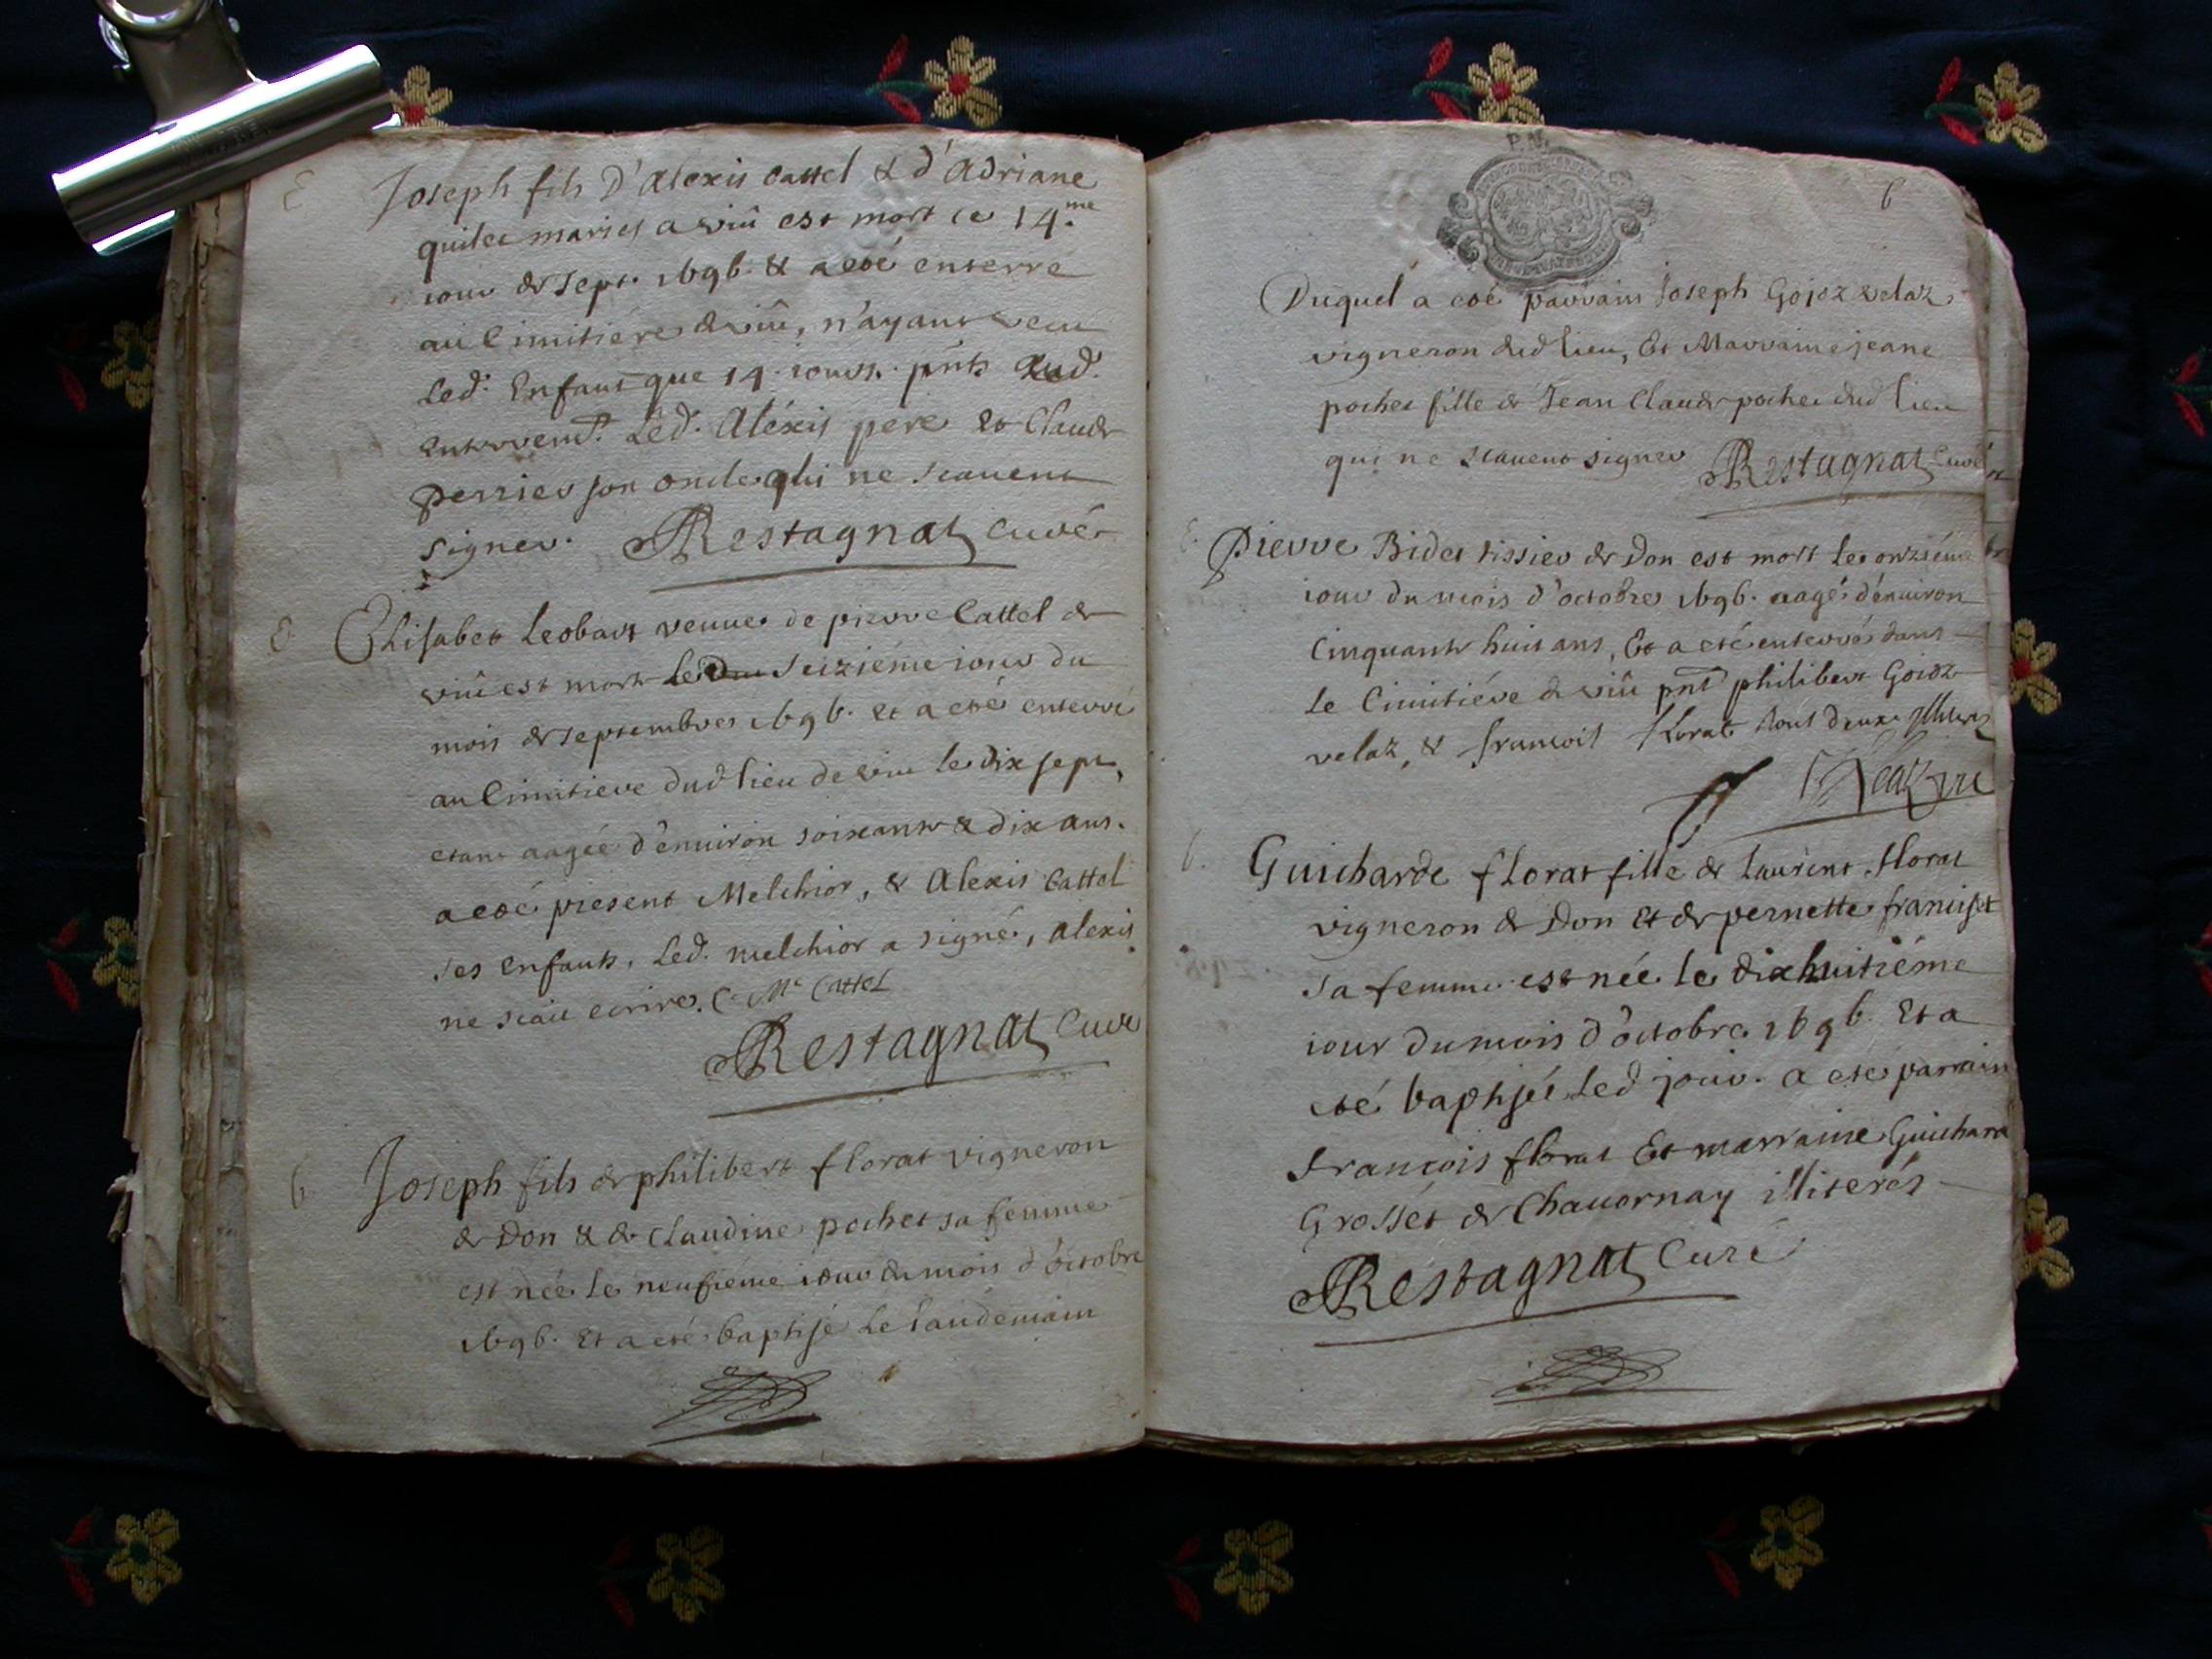 E
Joseph fils D'alexis Cattel & d'adriane
quilet mariés a viû est mort le 14.me
iour de sept. 1696. & a eté enterré
au Cimitiére de viû, n'ayant vecu
Led. Enfant que 14. iours. pnts aud.
Led. Aléxis pere et Claude
perrier son oncle qui ne scavent
signer. Restagnat Curé
E
Elisabet Leobart veuve de pierre Cattel de
viû est morte le seizième iour du
mois de septembre 1696. et a eté enterré
au Cimitiere dud lieu de viu le dix sept,
etant aagée d'environ soixante & dix ans.
a eté present Melchior, & Alexis Cattel
ses enfants, Led. melchior a signé, alexis
ne scait ecrire. Cattel
Restagnat Curé
b
Joseph fils de philibert florat vigneron
de Don & de Claudine pochet sa femme
est née le neufieme iour du mois d'octobre
1696. Et a eté baptisé le landemain
P.N.
6
Duquel a eté parrain Joseph Gojoz velaz
vigneron dud lieu, Et Marraine jeane
pochet fille de Jean Claude pochet dud lieu
qui ne scavent signer Restagnat Curé
E.
Pierre Bidet tissier de Don est mort le onziéme
iour du mois d'octobre 1696. aagé d'environ
Cinquante huit ans, Et a eté enterré dans
le Cimitiére de viû pnt philibert Goioz
velaz, & francois florat tout deux
b.
Guicharde florat fille de Laurent florat
vigneron de Don et de pernette franciset
sa femme est née le dixhuitiéme
iour du mois d'octobre 1696. Et a
eté baptisée Led jour. a eté parrain
françois florat Et marraine Guichard
Grosset de Chavornay illiterés
Restagnat Curé